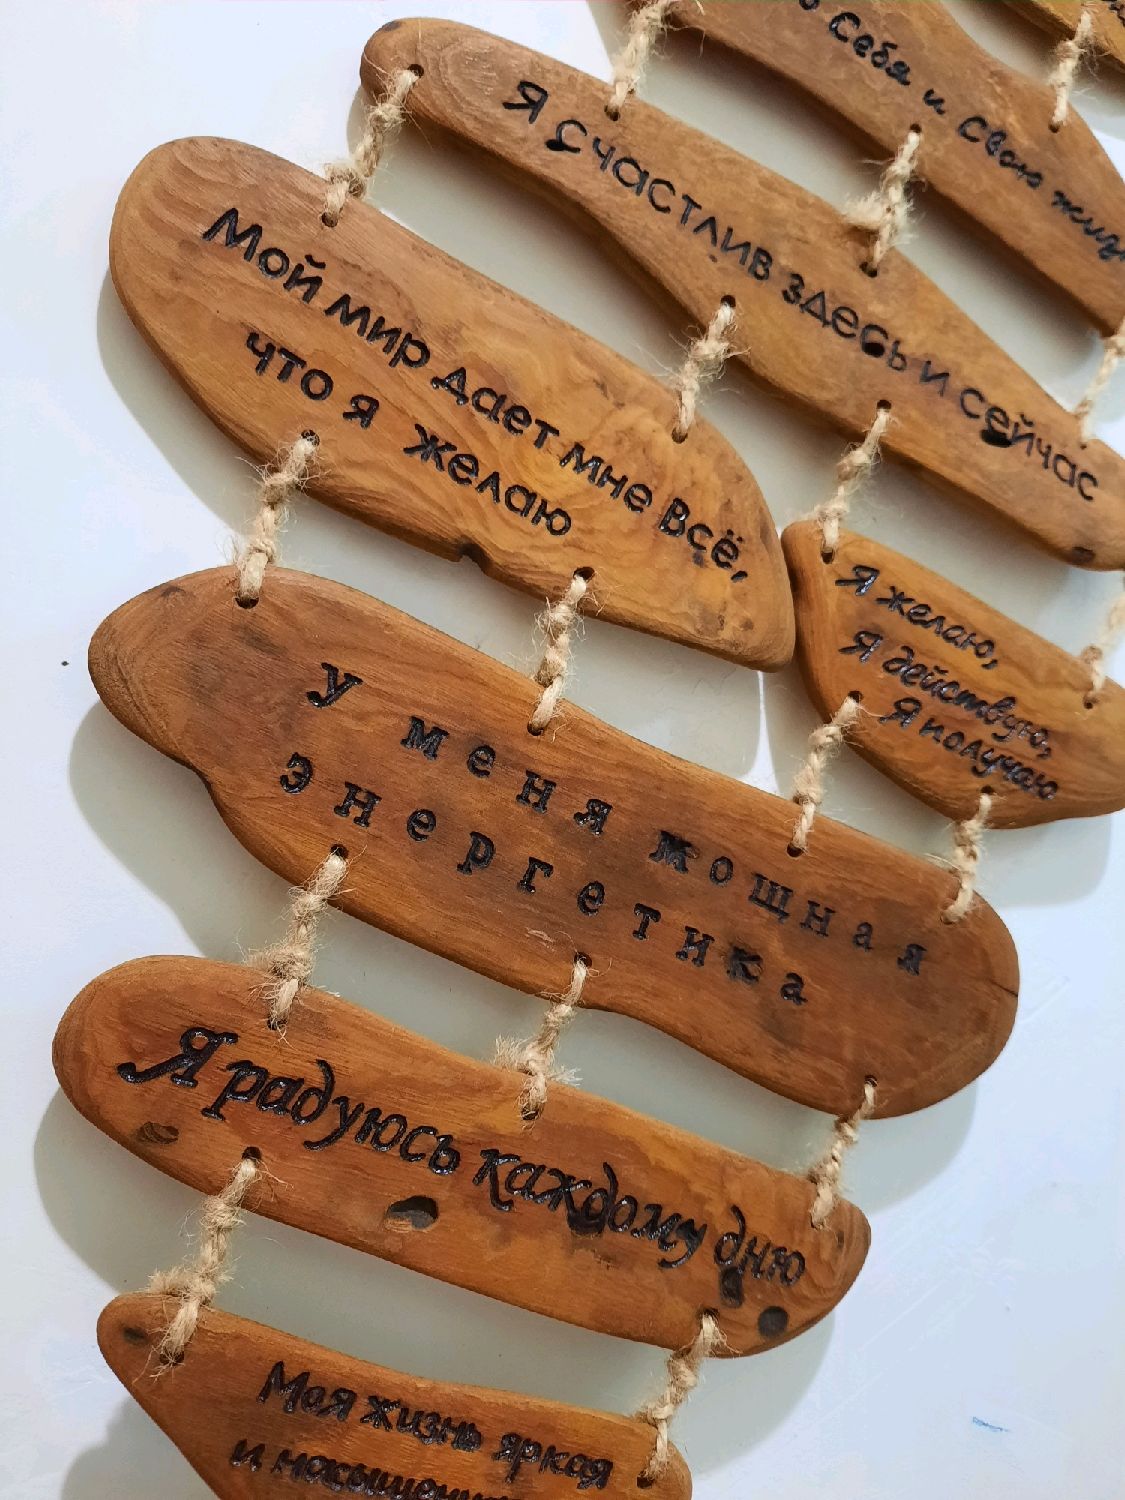 Себя и Свою
Я Счастлив здесь и сейчас
Мой мир дает мне Всё,
что я желаю
Я желаю,
Я действую,
Я получаю
У меня мощная
энергетика
Я радуюсь каждому дню
Моя жизнь яркая
и